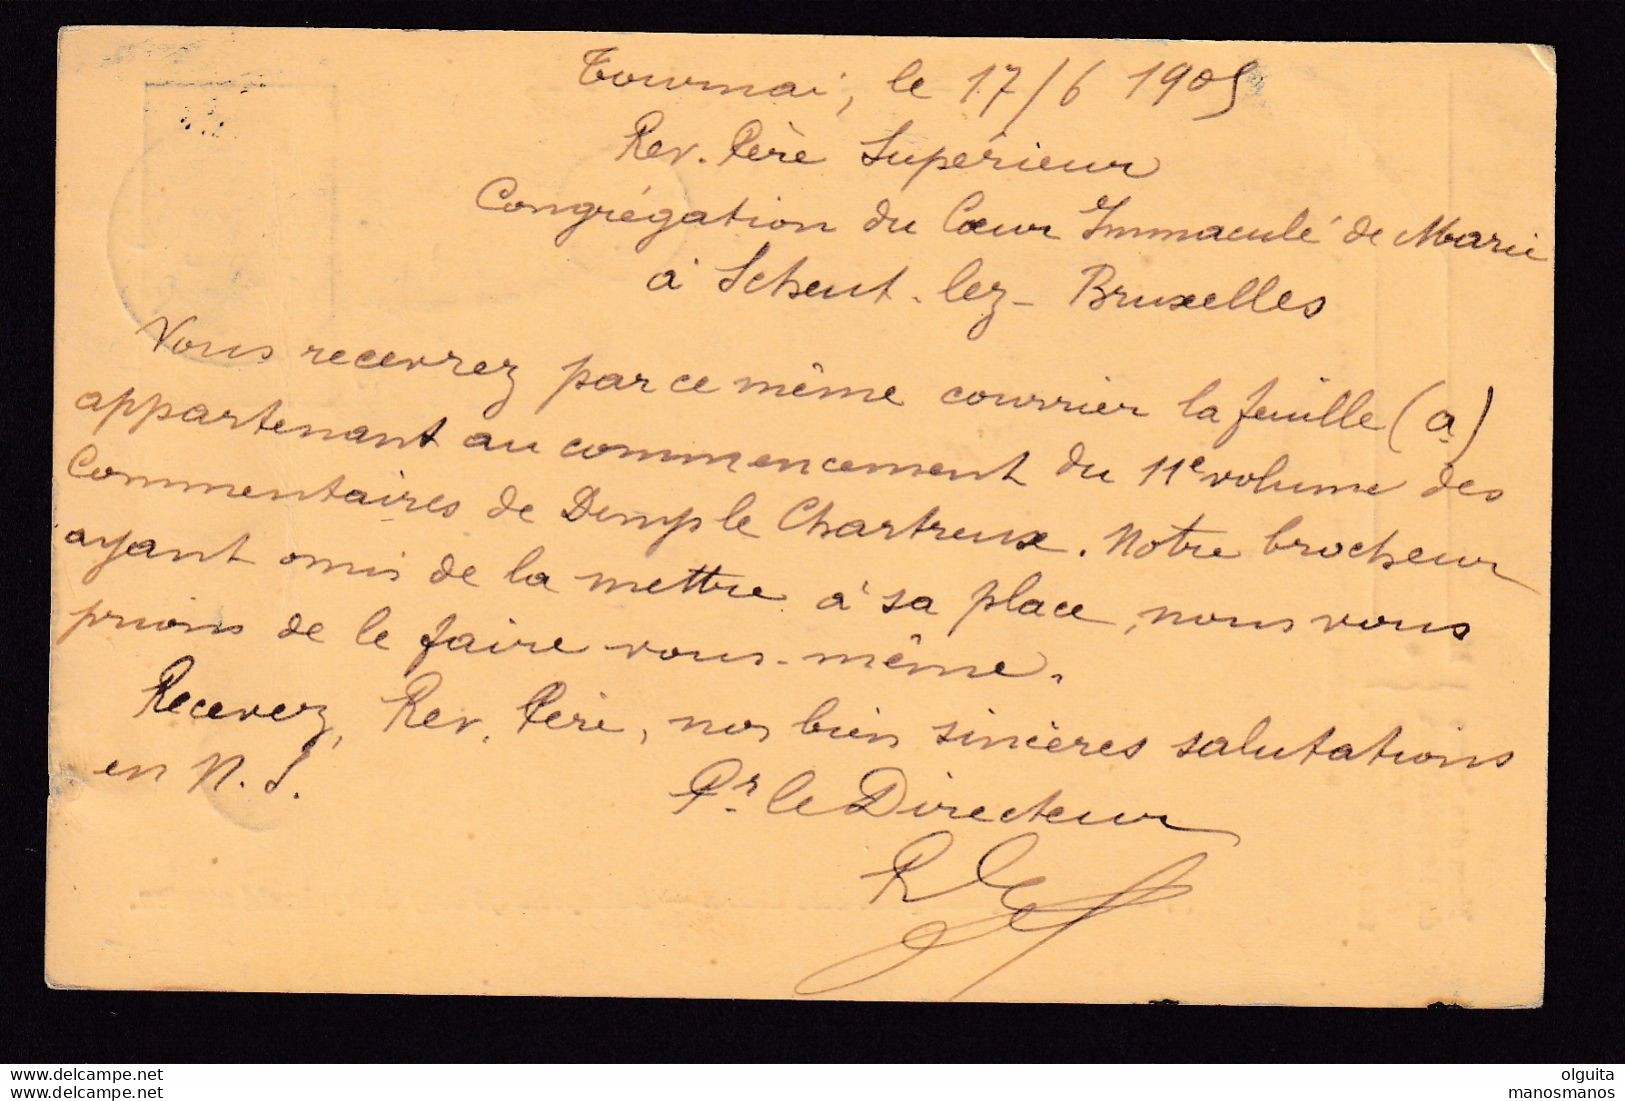 Tournai, le 17/6 1905
Rev. Père Supérieur
Congrégation du Cœur Immaculé de Marie
à Scheut-lez-Bruxelles
Vous recevrez par ce même courrier la feuille (a)
appartenant au commencement du 11e volume des
Commentaires de le Chartreux. Notre brocheur
ayant omis de la mettre à sa place, nous vous
prions de le faire vous-même.
Recevez, Rev. Père, nos bien sincères salutations
en N. S.
Pr le Directeur
www.delcampe.net
www.delcampe.net
olguita
manosmanos